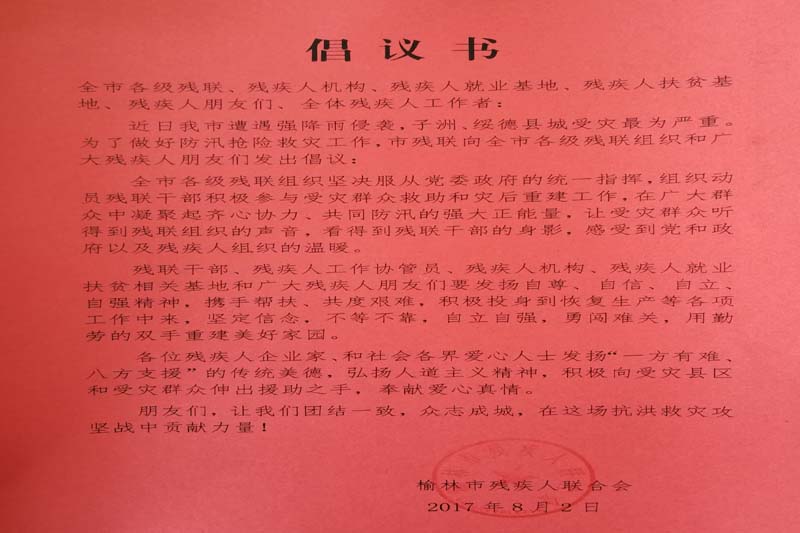 倡议书
全市各级残联、残疾人机构、残疾人就业基地、残疾人扶贫基
地、残疾人朋友们、全体残疾人工作者：
近日我市遭遇强降雨侵袭，子洲、绥德县城受灾最为严重。
为了做好防汛抢险救灾工作，市残联向全市各级残联组织和广
大残疾人朋友们发出倡议：
全市各级残联组织坚决服从党委政府的统一指挥，组织动
员残联干部积极参与受灾群众救助和灾后重建工作，在广大群
众中凝聚起齐心协力、共同防汛的强大正能量，让受灾群众听
得到残联组织的声音，看得到残联干部的身影，感受到党和政
府以及残疾人组织的温暖。
残联干部、残疾人工作协管员、残疾人机构、残疾人就业
扶贫相关基地和广大残疾人朋友们要发扬自尊、自信、自立、
自强精神，携手帮扶、共度艰难，积极投身到恢复生产等各项
工作中来，坚定信念，不等不靠，自立自强，勇闯难关，用勤
劳的双手重建美好家园。
各位残疾人企业家、和社会各界爱心人士发扬“一方有难、
八方支援”的传统美德，弘扬人道主义精神，积极向受灾县区
和受灾群众伸出援助之手，奉献爱心真情。
朋友们，让我们团结一致，众志成城，在这场抗洪救灾攻
坚战中贡献力量！
榆林市残疾人联合会
2017年8月2日